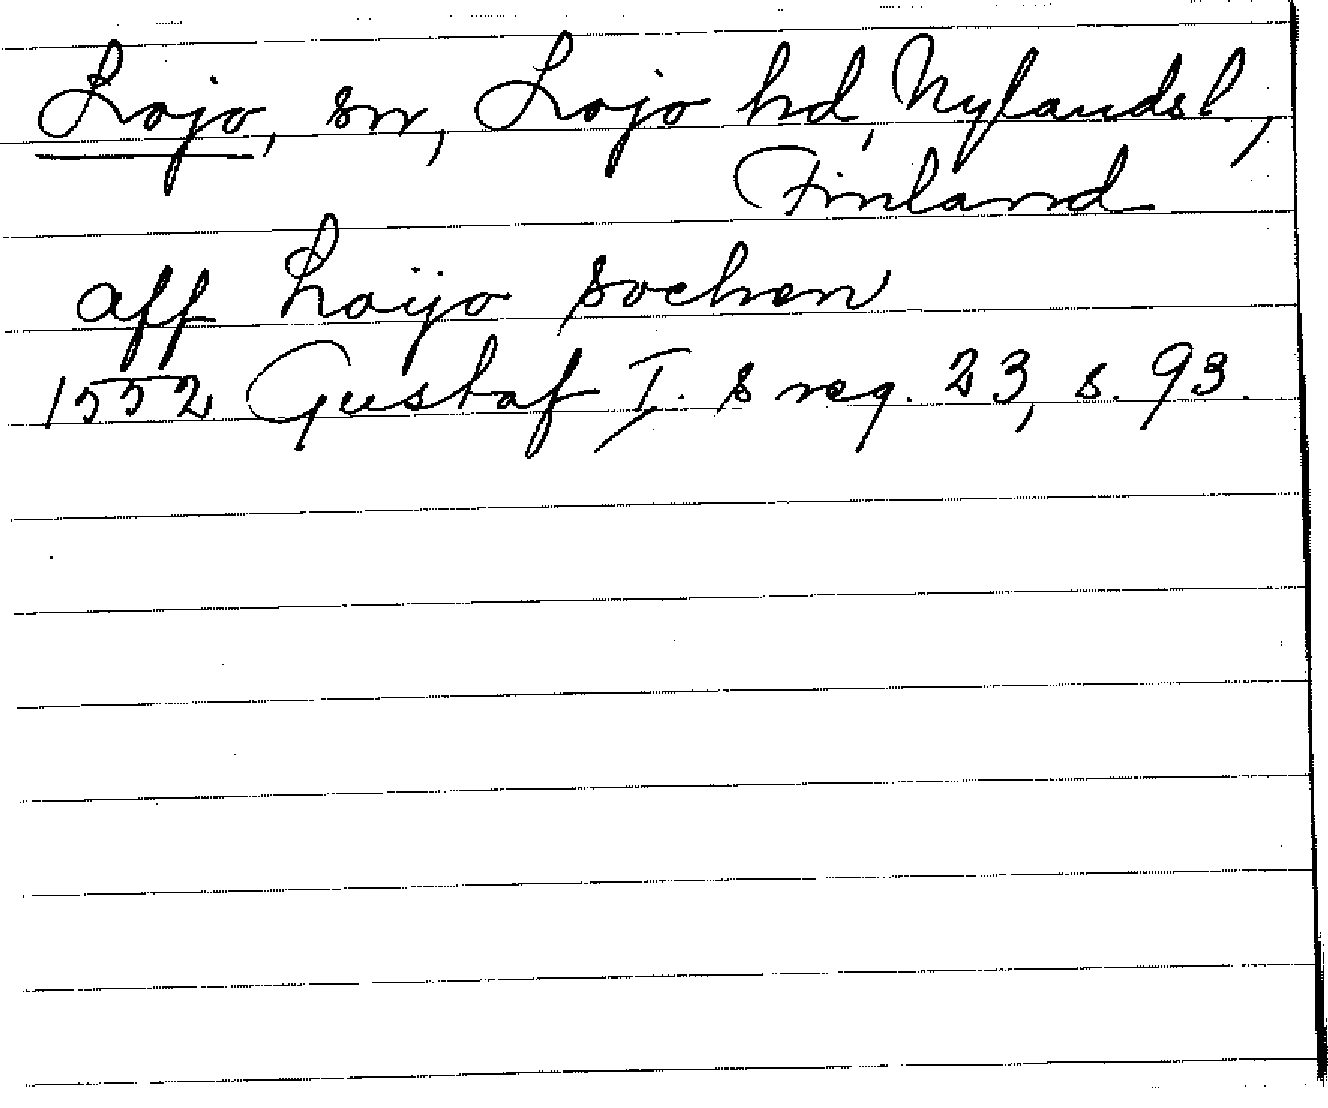 Lojo, sn, Lojo hd, Nylands l.,
Finland
aff Loijo sochen
1552 Gustaf I. s reg. 23, s. 93.